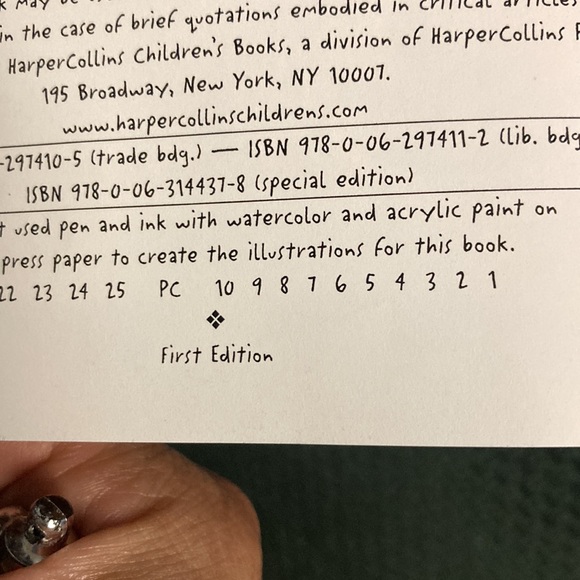 may be
in the case of brief quotations embodied in critical articles
HarperCollins Children's Books, a division of HarperCollins
195 Broadway, New York, NY 10007.
www.harpercollinschildrens.com
-297410-5 (trade bdg.) — ISBN 978-0-06-297411-2 (lib. bdg
ISBN 978-0-06-314437-8 (special edition)
used pen and ink with watercolor and acrylic paint on
press paper to create the illustrations for this book.
22 23 24 25 PC 10 9 8 7 6 5 4 3 2 1
❖
First Edition